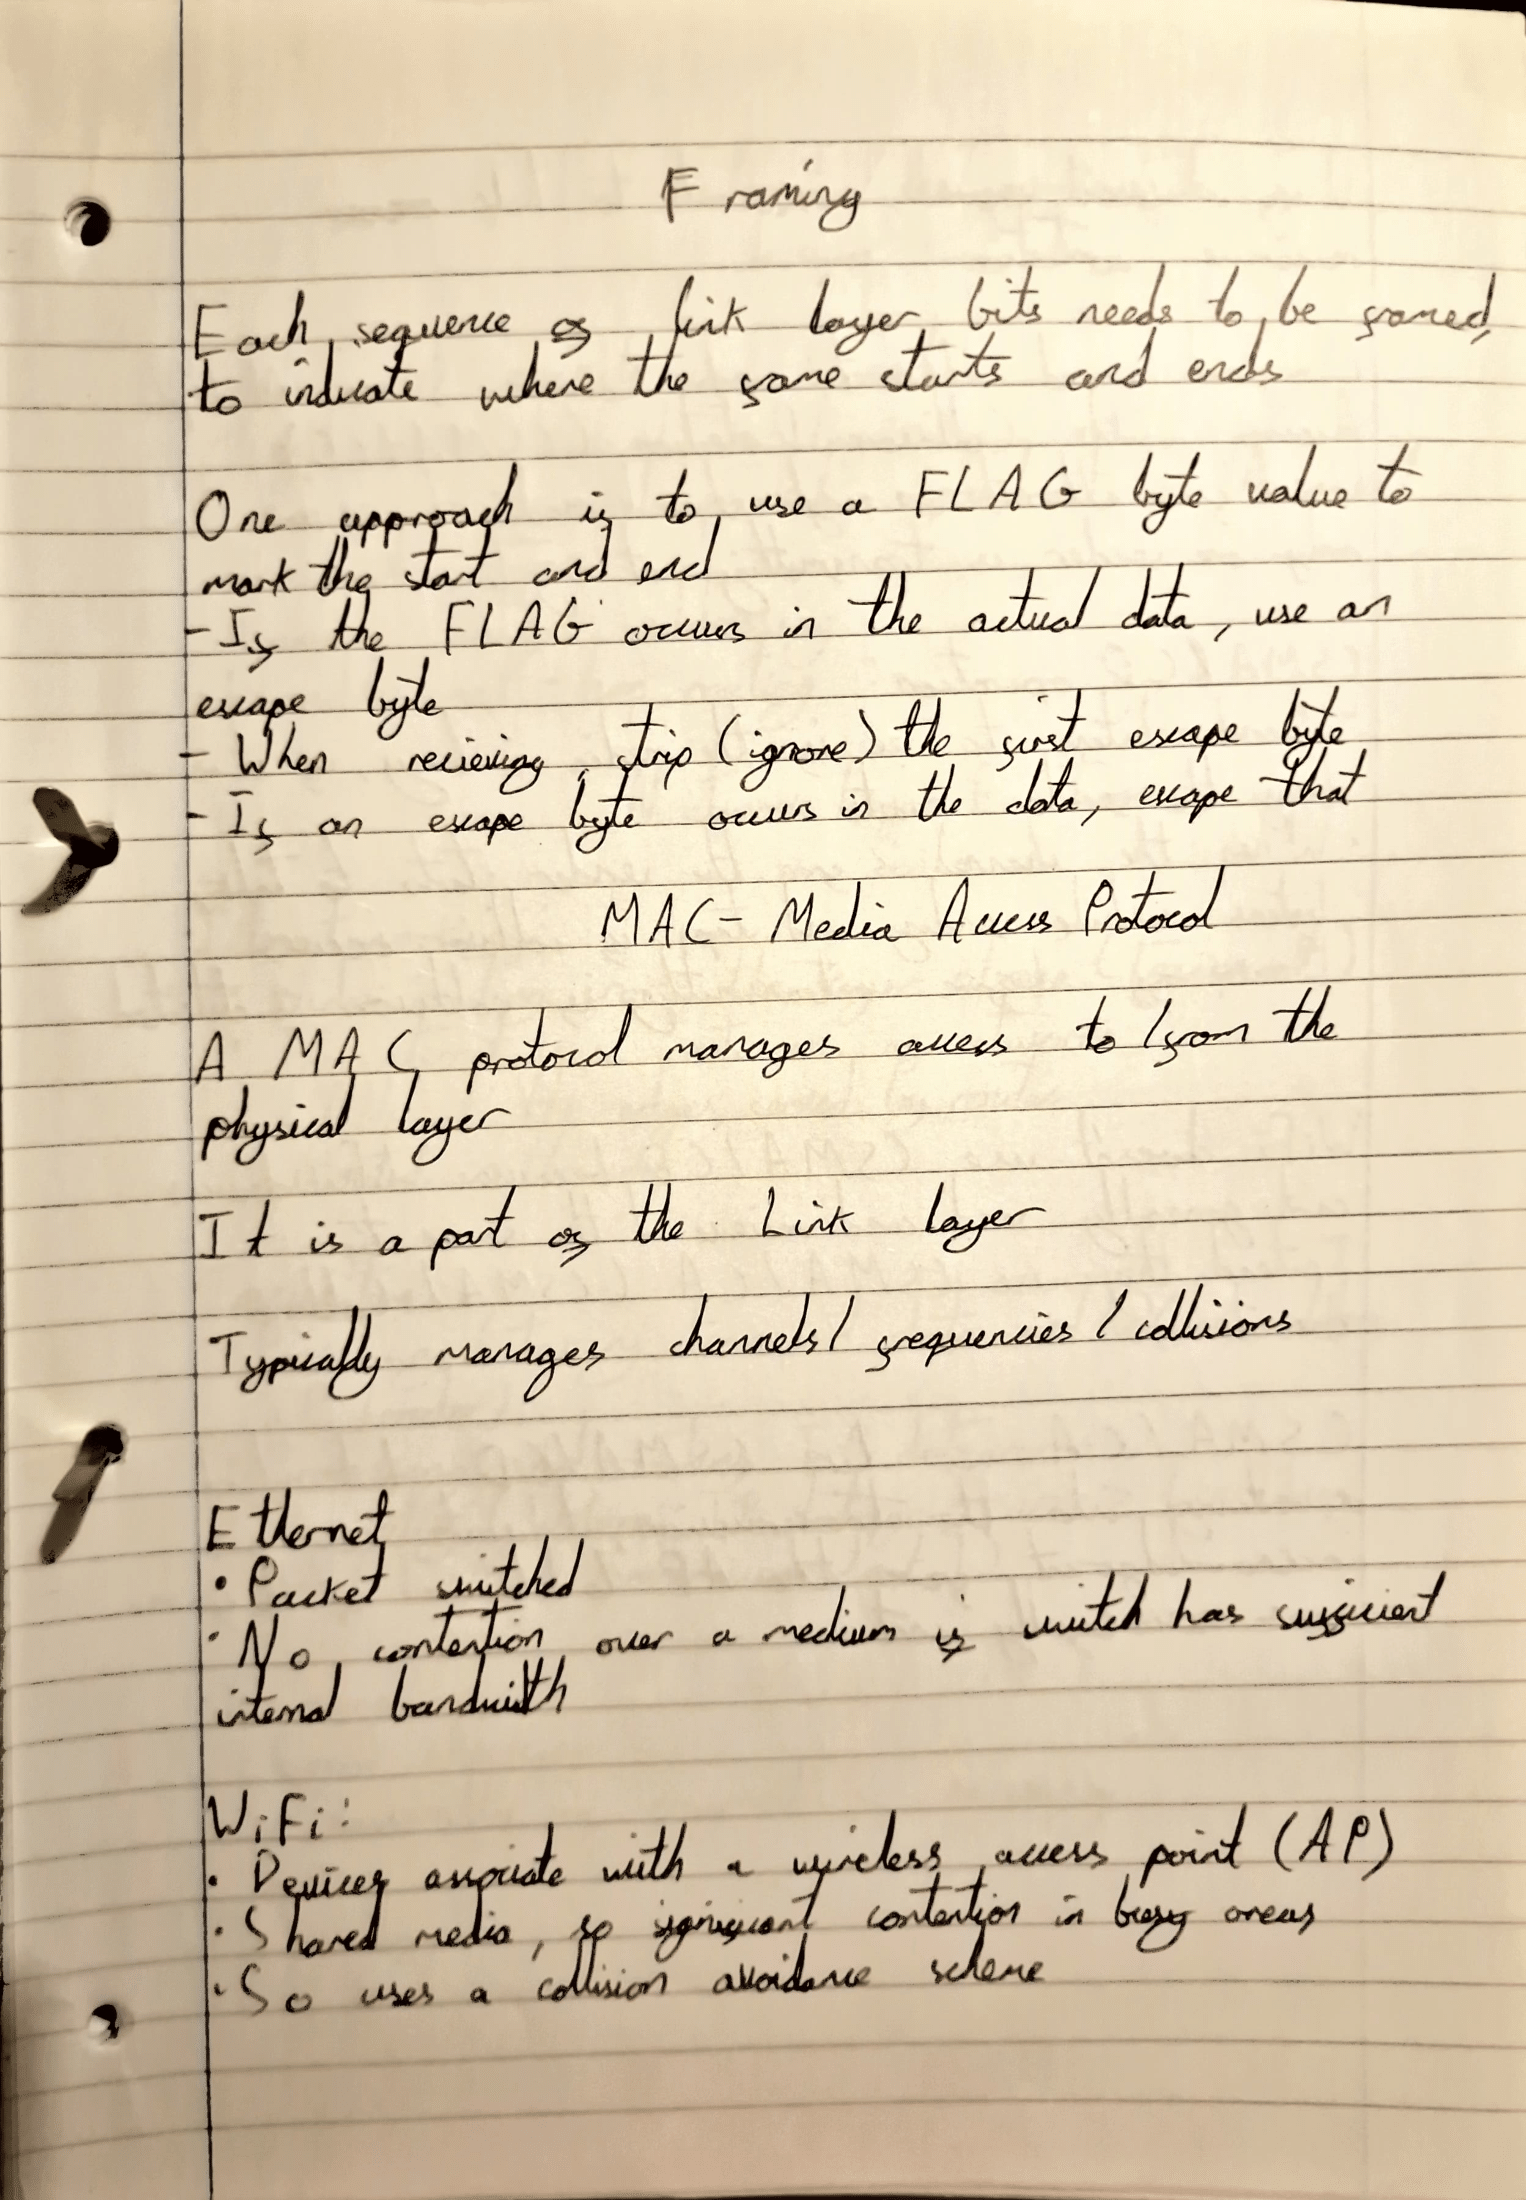 Framing
Each sequence of link layer bits needs to be framed,
to indicate where the frame starts and ends
One approach is to use a FLAG byte value to
mark the start and end
- If the FLAG occurs in the actual data, use an
escape byte
- When recieving, strip (ignore) the first escape byte
- If an escape byte occurs in the data, escape that
MAC - Media Access Protocol
A MAC protocol manages access to / from the
physical layer
It is a part of the Link layer
Typically manages channels / frequencies / collisions
Ethernet
• Packet switched
• No contention over a medium if switch has sufficient
internal bandwidth
WiFi:
• Devices associate with a wireless access point (AP)
• Shared media, so significant contention in busy areas
• So uses a collision avoidance scheme